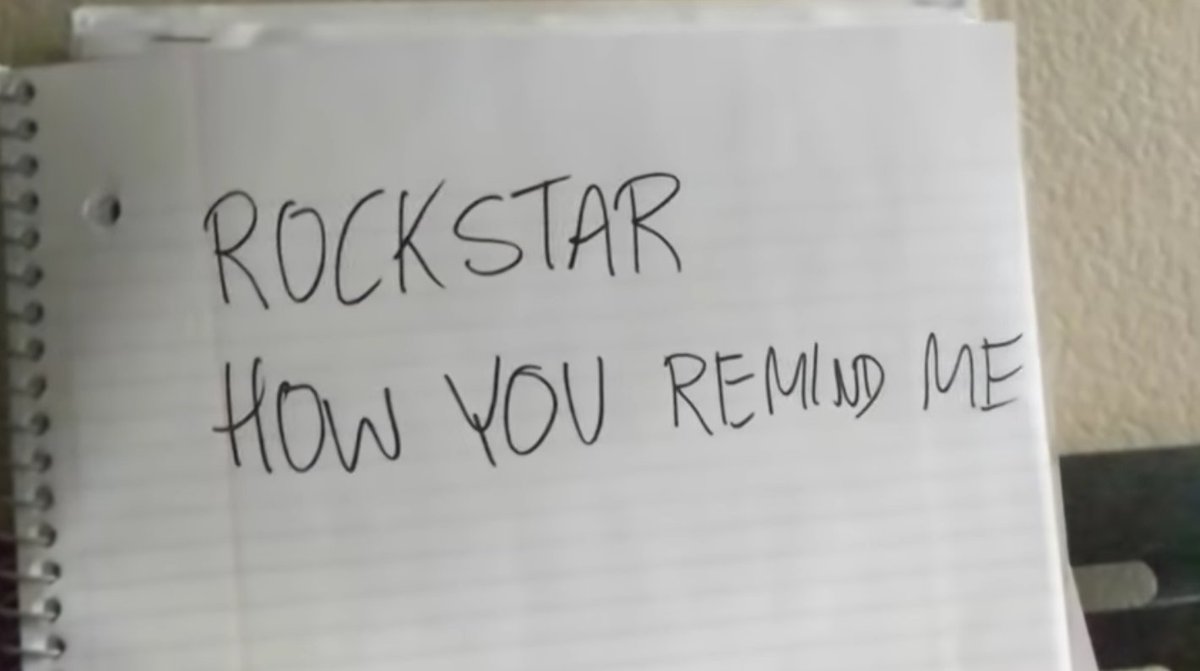 ROCKSTAR
HOW YOU REMIND ME